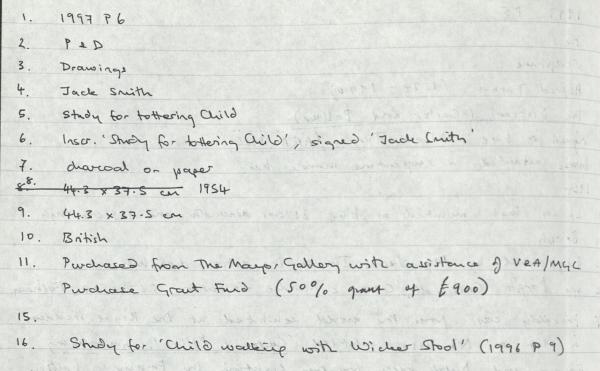 1. 1997 P 6
2. P & D
3. Drawings
4. Jack Smith
5. Study for tottering Child
6. Inscr. 'Study for tottering Child', signed 'Jack Smith'
7. charcoal on paper
8. 8. 44.3 x 37.5 cm 1954
9. 44.3 x 37.5 cm
10. British
11. Purchased from The Mayor Gallery with assistance of V&A/MGC
Purchase Grant Fund (50% grant of £900)
15.
16. Study for 'Child walking with Wicker Stool' (1996 P 9)